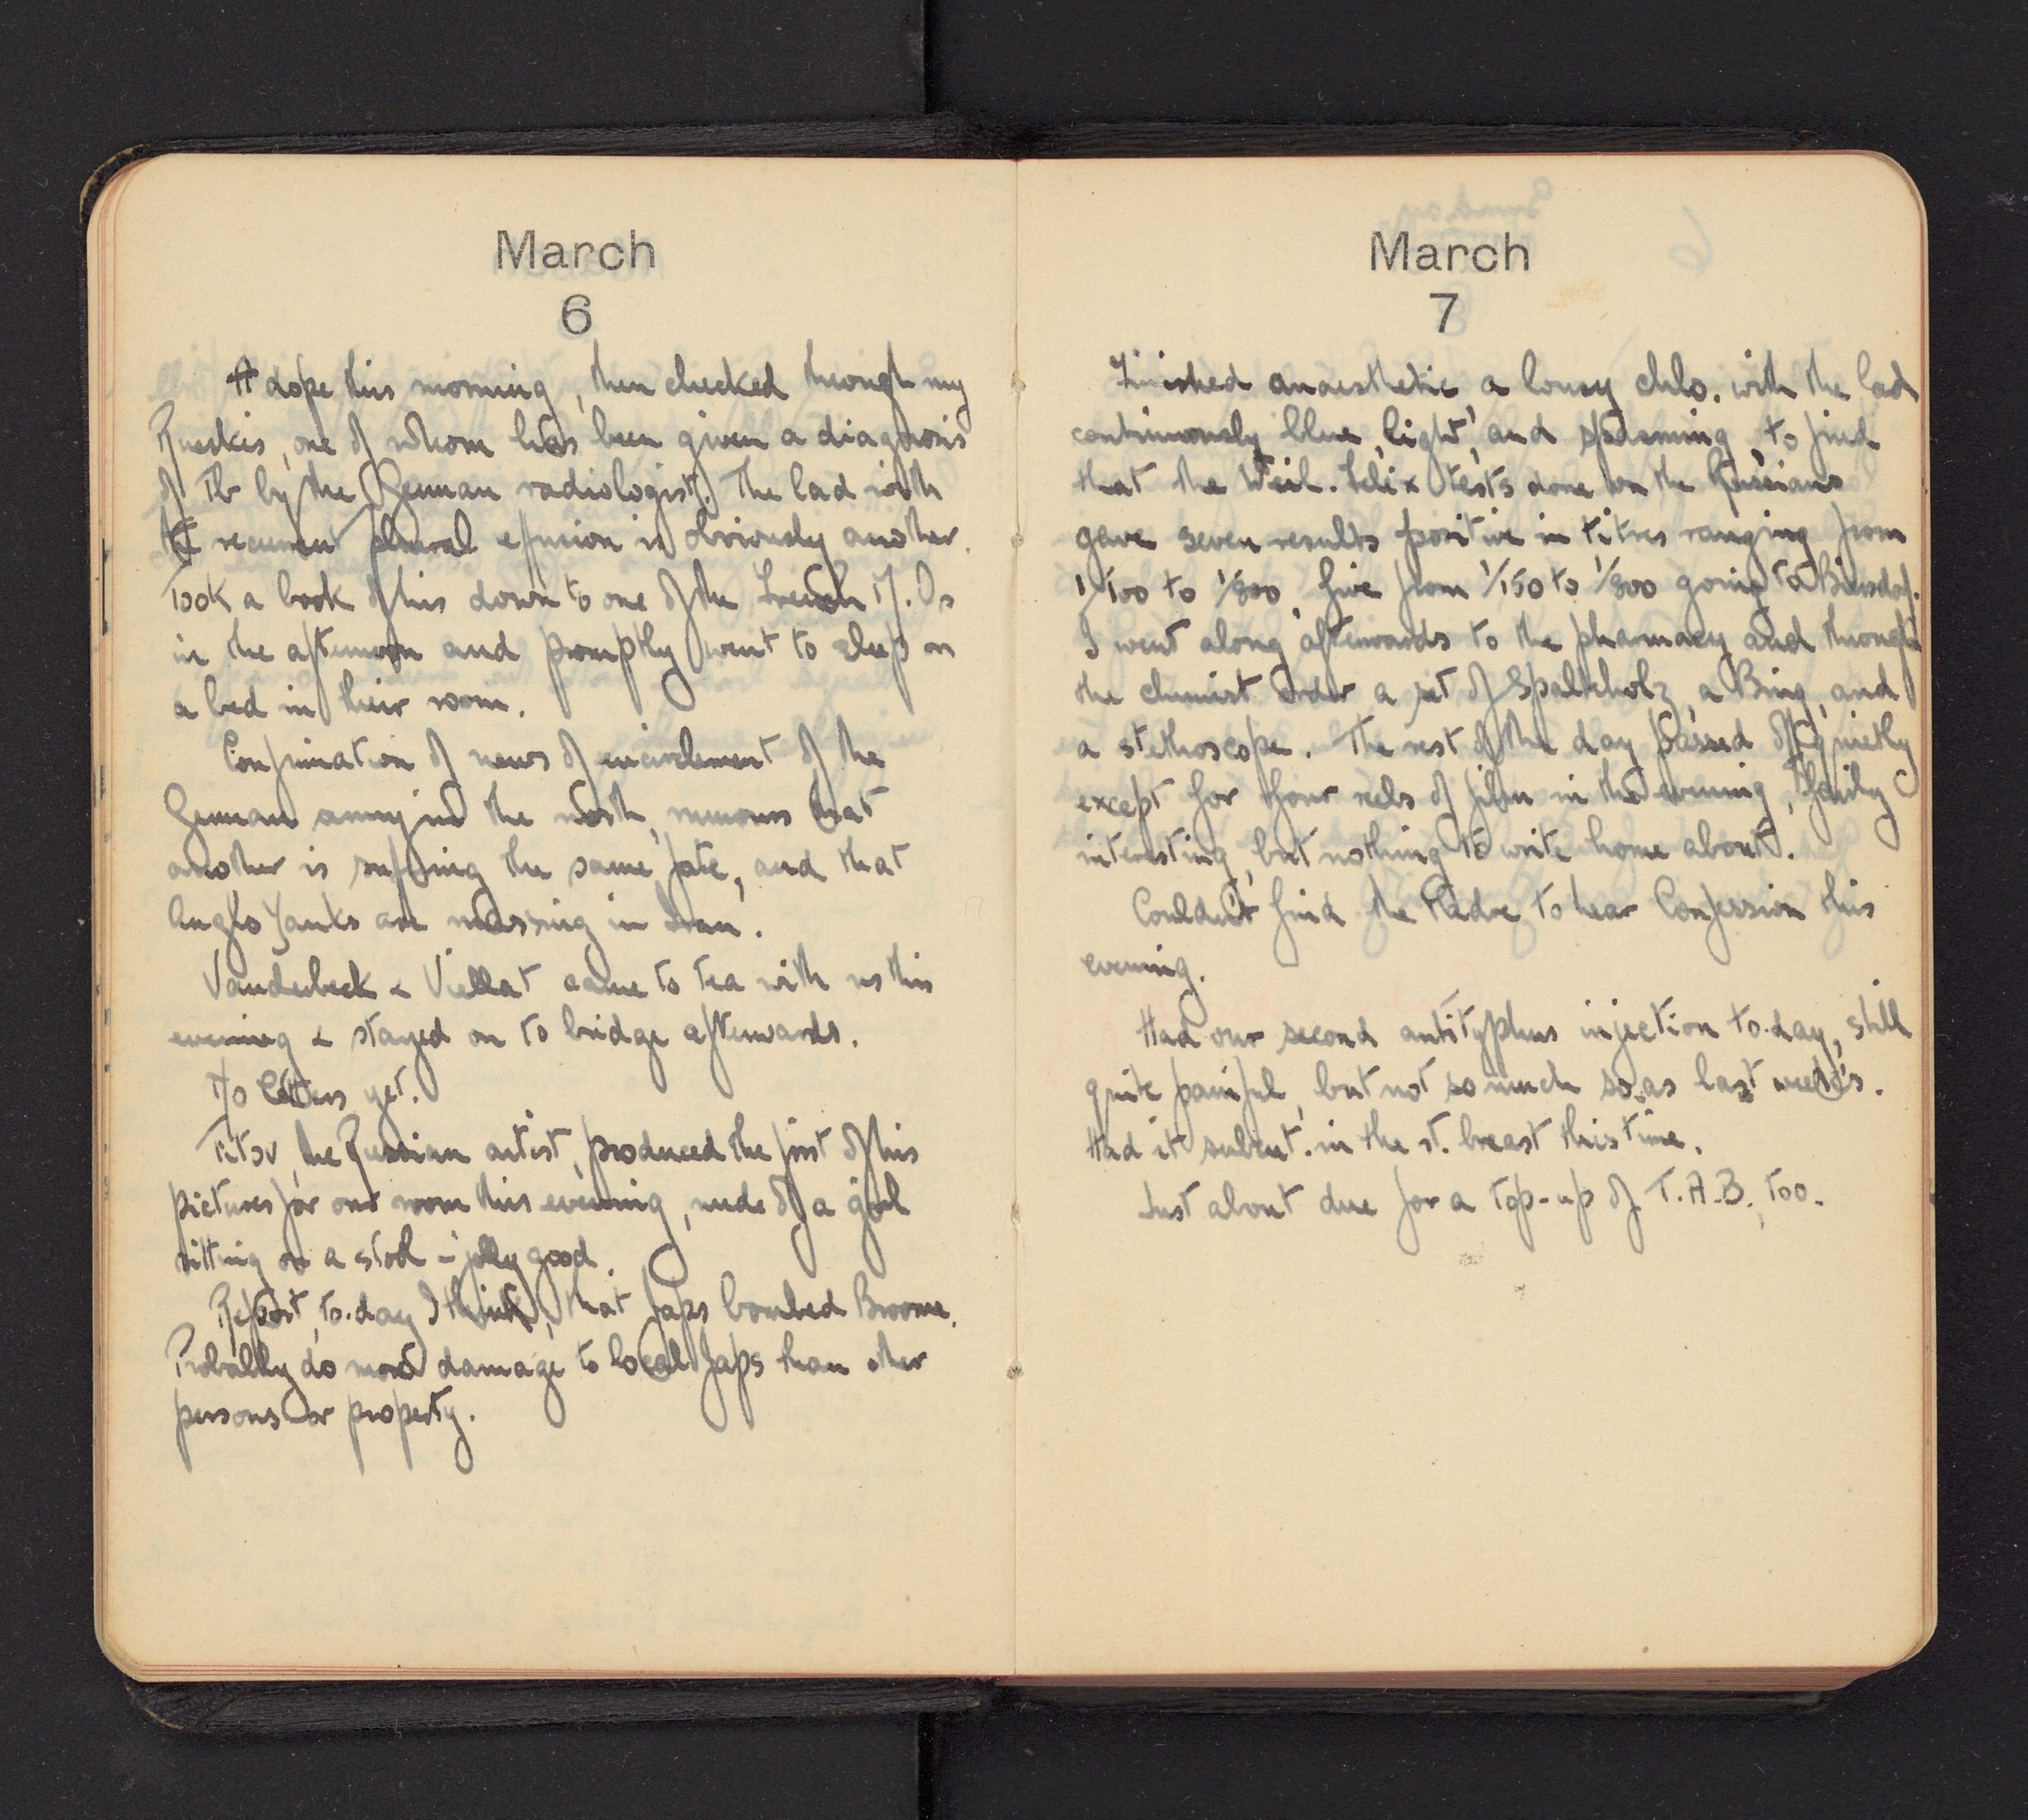 March
6
A dope this morning, then checked through my
Russkis, one of whom has been given a diagnosis
of Tb by the German radiologist. The lad with
recurrent pleural efusion is obviously another.
Took a book of his down to one of the French M.Os
in the afternoon and promptly went to sleep on
a bed in their room.
Confirmation of news of encirclement of the
German army in the north, rumours that
another is suffering the same fate, and that
Anglo Yanks are massing in Iran.
Vanderbeck & Viellat came to tea with us this
evening & stayed on to bridge afterwards.
No letters yet.
Titov, the Russian artist, produced the first of his
pictures for our room this evening, nude of a girl
sitting on a stool – jolly good.
Report, to-day I think, that Japs bombed Broome.
Probably do more damage to local Japs than other
persons or property.
March
7
Finished anaesthetic a lousy chlo. with the lad
continuously blue, 'light' and spasming, to find
that the Weil-Felix tests done on the Russians
gave seven results positive in titres ranging from
1/100 to 1/800, five from 1/150 to 1/800 going to
I went along afterwards to the pharmacy and through
the chemist order a set of Spalteholz, a Bing, and
a stethoscope. The rest of the day passed off quietly
except for four reels of film in the evening, fairly
interesting, but nothing to write home about.
Couldn't find the Padre to hear Confession this
evening.
Had our second antityphus injection to-day, still
quite painful, but not so much so as last week's.
Had it subcut. in the rt. breast this time.
Just about due for a top-up of T.A.B., too.